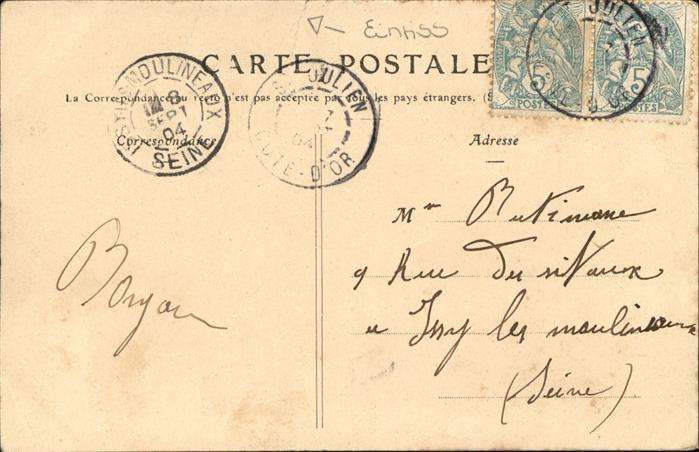 Einriss
CARTE POSTALE
La Correspondance au recto n'est pas acceptée par tous les pays étrangers.
Correspondance
Adresse
ISSY-LES-MOULINEAUX
8
SEPT
04
SEINE
JULIEN
04
CÔTE-D'OR
JULIEN
CÔTE-D'OR
5c
POSTES
5c
POSTES
Mr
9 Rue
a Issy les moulineaux
(Seine)